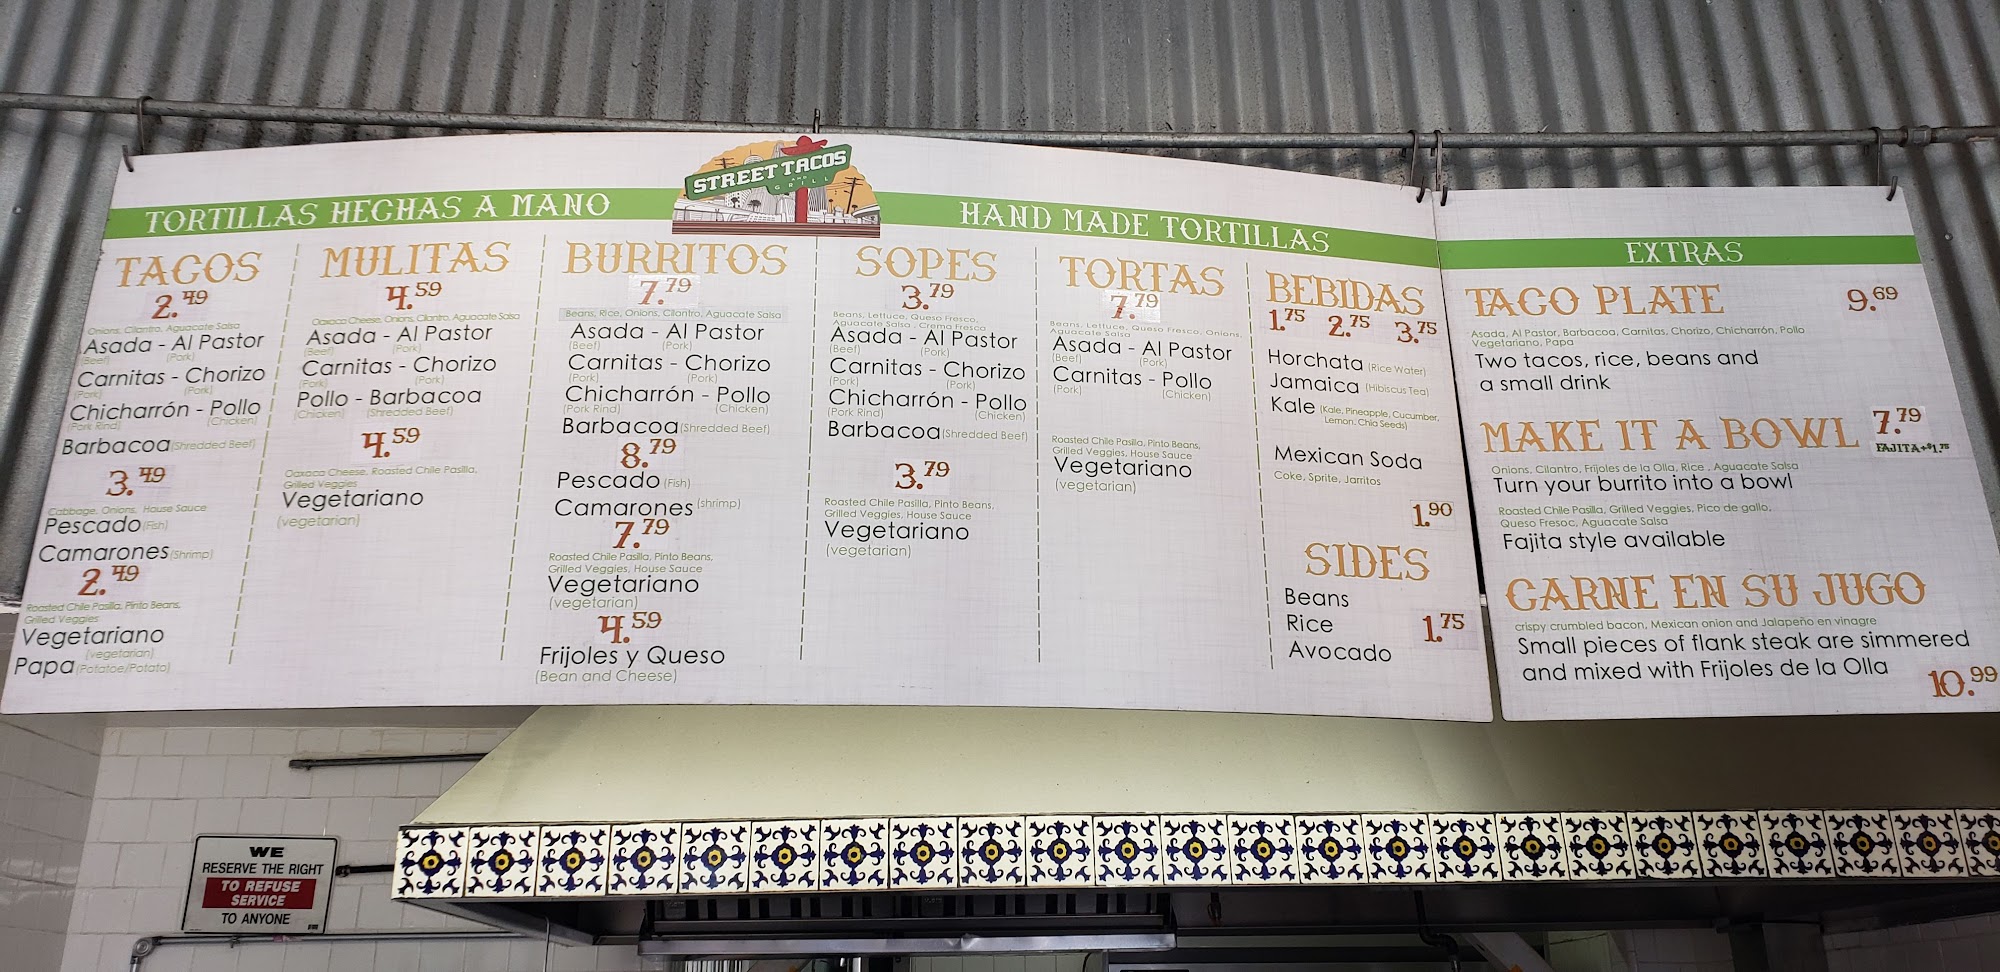 STREET TACOS
AND
GRILL
TORTILLAS HECHAS A MANO
HAND MADE TORTILLAS
TACOS
2.49
Onions, Cilantro, Aguacate Salsa
Asada - Al Pastor
(Beef) (Pork)
Carnitas - Chorizo
(Pork) (Pork)
Chicharrón - Pollo
(Pork Rind) (Chicken)
Barbacoa (Shredded Beef)
3.49
Cabbage, Onions, House Sauce
Pescado (Fish)
Camarones (Shrimp)
2.49
Roasted Chile Pasilla, Pinto Beans,
Grilled Veggies
Vegetariano
(vegetarian)
Papa (Potatoe/Potato)
MULITAS
4.59
Oaxaca Cheese, Onions, Cilantro, Aguacate Salsa
Asada - Al Pastor
(Beef) (Pork)
Carnitas - Chorizo
(Pork) (Pork)
Pollo - Barbacoa
(Chicken) (Shredded Beef)
4.59
Oaxaca Cheese, Roasted Chile Pasilla,
Grilled Veggies
Vegetariano
(vegetarian)
BURRITOS
7.79
Beans, Rice, Onions, Cilantro, Aguacate Salsa
Asada - Al Pastor
(Beef) (Pork)
Carnitas - Chorizo
(Pork) (Pork)
Chicharrón - Pollo
(Pork Rind) (Chicken)
Barbacoa (Shredded Beef)
8.79
Pescado (Fish)
Camarones (shrimp)
7.79
Roasted Chile Pasilla, Pinto Beans,
Grilled Veggies, House Sauce
Vegetariano
(vegetarian)
4.59
Frijoles y Queso
(Bean and Cheese)
SOPES
3.79
Beans, Lettuce, Queso Fresco,
Aguacate Salsa , Crema Fresca
Asada - Al Pastor
(Beef) (Pork)
Carnitas - Chorizo
(Pork) (Pork)
Chicharrón - Pollo
(Pork Rind) (Chicken)
Barbacoa (Shredded Beef)
3.79
Roasted Chile Pasilla, Pinto Beans,
Grilled Veggies, House Sauce
Vegetariano
(vegetarian)
TORTAS
7.79
Beans, Lettuce, Queso Fresco, Onions,
Aguacate Salsa
Asada - Al Pastor
(Beef) (Pork)
Carnitas - Pollo
(Pork) (Chicken)
Roasted Chile Pasilla, Pinto Beans,
Grilled Veggies, House Sauce
Vegetariano
(vegetarian)
BEBIDAS
1.75 2.75 3.75
Horchata (Rice Water)
Jamaica (Hibiscus Tea)
Kale (Kale, Pineapple, Cucumber,
Lemon, Chia Seeds)
Mexican Soda
Coke, Sprite, Jarritos
1.90
SIDES
Beans
Rice 1.75
Avocado
EXTRAS
TACO PLATE 9.69
Asada, Al Pastor, Barbacoa, Carnitas, Chorizo, Chicharrón, Pollo
Vegetariano, Papa
Two tacos, rice, beans and
a small drink
MAKE IT A BOWL 7.79
FAJITA+$1.75
Onions, Cilantro, Frijoles de la Olla, Rice , Aguacate Salsa
Turn your burrito into a bowl
Roasted Chile Pasilla, Grilled Veggies, Pico de gallo,
Queso Fresoc, Aguacate Salsa
Fajita style available
CARNE EN SU JUGO
crispy crumbled bacon, Mexican onion and Jalapeño en vinagre
Small pieces of flank steak are simmered
and mixed with Frijoles de la Olla
10.99
WE
RESERVE THE RIGHT
TO REFUSE
SERVICE
TO ANYONE